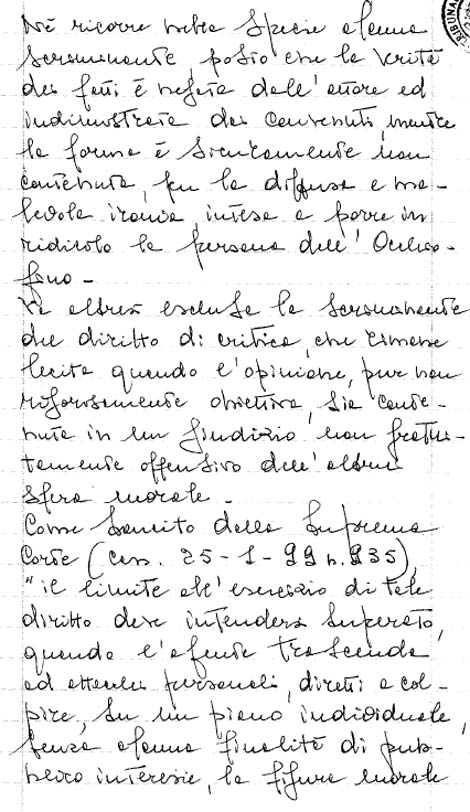 Né ricorre nella specie alcuna
scriminante, posto che la verità
dei fatti è negata dall'attore ed
indimostrata dai convenuti, mentre
la forma è sicuramente non
contenuta, per la diffusa e ma-
levola ironia intesa a porre in
ridicolo la persona dell'
-
Va altresì esclusa la scriminante
del diritto di critica, che rimane
lecita quando l'opinione, pur non
rigorosamente obiettiva, sia conte-
nuta in un giudizio non gratui-
tamente offensivo dell'altrui
sfera morale.
Come sancito dalla Suprema
Corte (Cass. 25-1-99 n. 935),
"il limite all'esercizio di tale
diritto deve intendersi superato,
quando l'agente trascenda
ad attacchi personali, diretti a col-
pire, su un piano individuale,
senza alcuna finalità di pub-
blico interesse, la figura morale
TRIBUNA